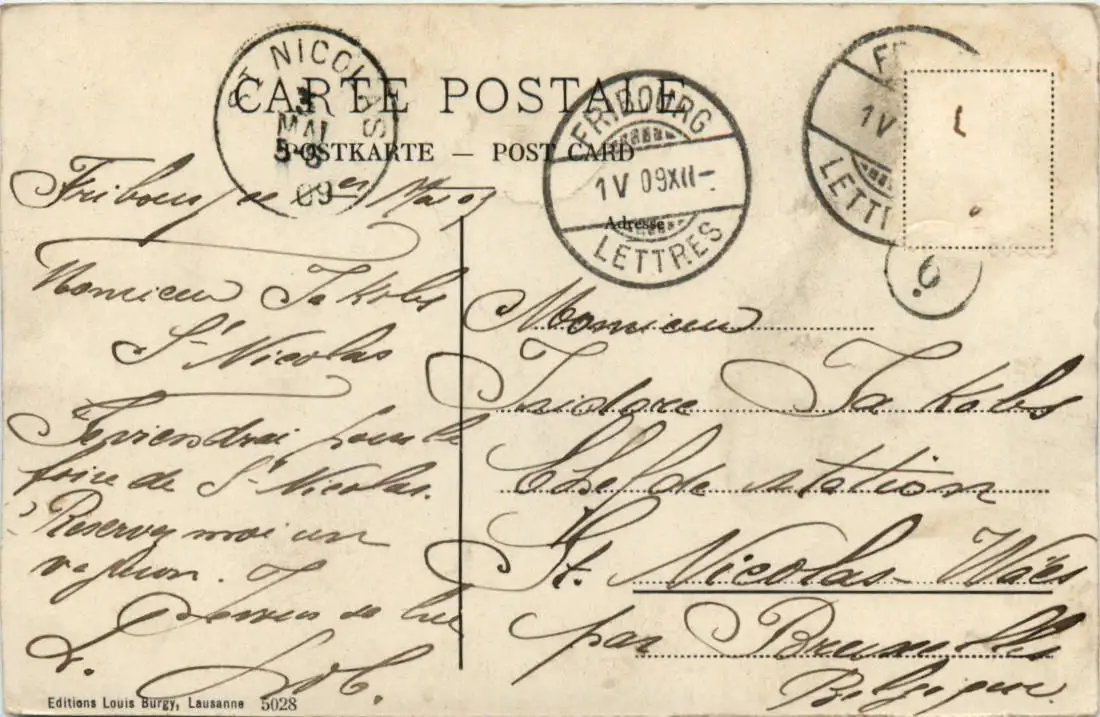 CARTE POSTALE
POSTKARTE — POST CARD
Adresse
ST NICOLAS
MAI
09
FRIBOURG
1 V 09 XII-
LETTRES
1 V
6
Fribourg 1er Mai 09
Monsieur Jakobs
St Nicolas
Je viendrai pour la
foire de St Nicolas.
Reservez moi un
Monsieur
Isidore Jakobs
Chef de station
St. Nicolas-Waes
par Bruxelles
Belgique
Editions Louis Burgy, Lausanne 5028